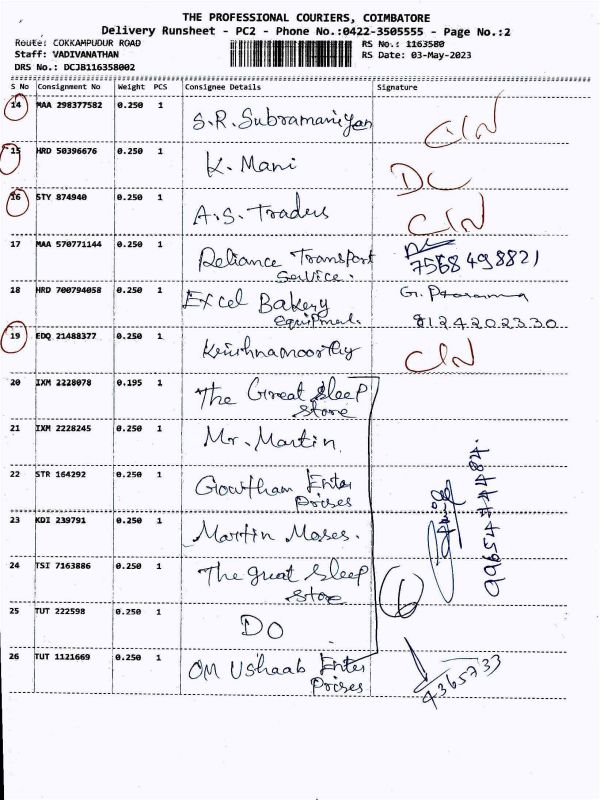 THE PROFESSIONAL COURIERS, COIMBATORE
Delivery Runsheet - PC2 - Phone No.:0422-3505555 - Page No.:2
Route: COKKAMPUDUR ROAD RS No.: 1163580
Staff: VADIVANATHAN RS Date: 03-May-2023
DRS No.: DCJB116358002
S No Consignment No Weight PCS Consignee Details Signature
14 MAA 298377582 0.250 1 S.R. Subramaniyan CIN
15 HRD 50396676 0.250 1 K. Mani DC
16 STY 874940 0.250 1 A.S. Traders CIN
17 MAA 570771144 0.250 1 Reliance Transport
Service. 7568498821
18 HRD 700794058 0.250 1 Excel Bakery G. Prasanna
equipment. 8124202330
19 EDQ 21488377 0.250 1 Krishnamoorthy CIN
20 IXM 2228078 0.195 1 The Great Sleep
Store
21 IXM 2228245 0.250 1 Mr. Martin
22 STR 164292 0.250 1 Gowtham Enter
Prises
23 KDI 239791 0.250 1 Martin Moses.
24 TSI 7163886 0.250 1 The great Sleep
Store
25 TUT 222598 0.250 1 DO
26 TUT 1121669 0.250 1 OM Ushaab Enter
Prises
4365733